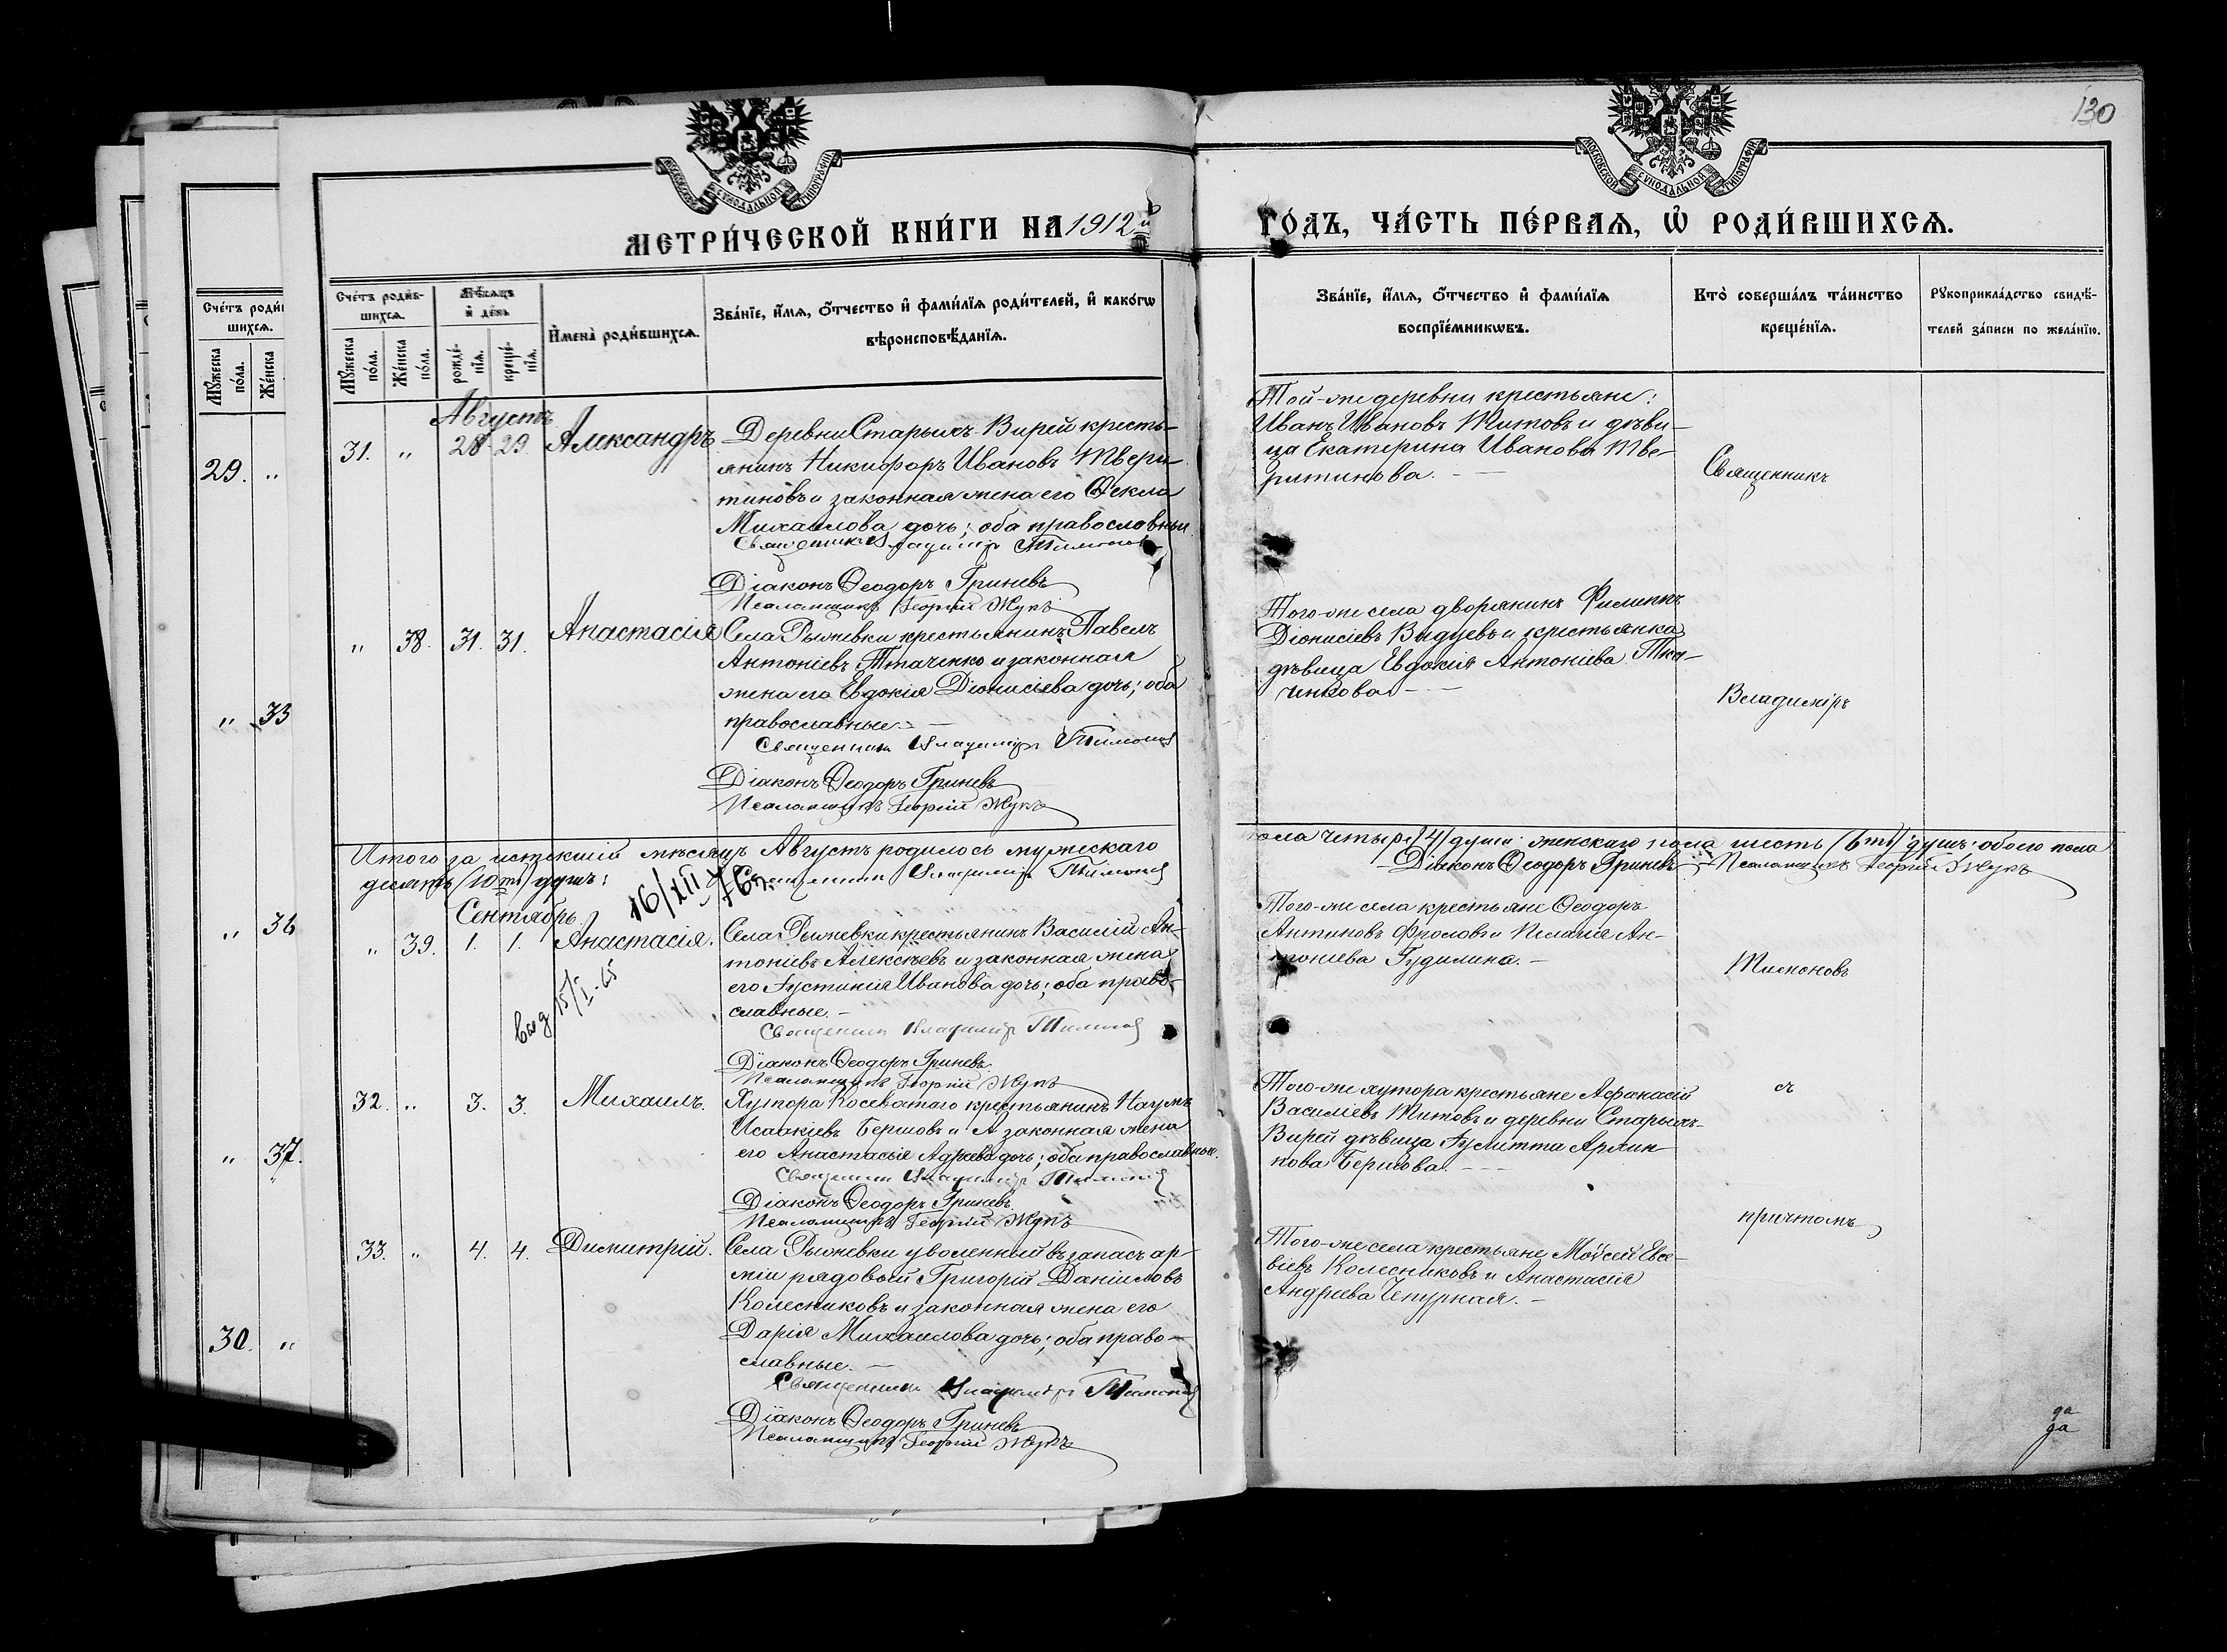 130
МОСКОВСКОЙ СѴНОДАЛЬНОЙ ТИПОГРАФІИ
МОСКОВСКОЙ СѴНОДАЛЬНОЙ ТИПОГРАФІИ
МЕТРИ́ЧЕСКОЙ КНИ́ГИ НА 1912 й
ГО́ДЪ, ЧА́СТЬ ПЕ́РВАЯ, Ѡ҆ РОДИ́ВШИХСЯ.
Сче́тъ роди́в-
шихся.
Мꙋ́жеска по́ла.
Же́нска по́ла.
Мѣ́сяцъ
и҆ де́нь
рожде́-
нїя.
креще́-
нїя.
И҆мена̀ роди́вшихся.
Зва́нїе, и҆́мя, ѻ҆́тчество и҆ фами́лїя роди́телей, и҆ како́гѡ
вѣроисповѣ́данїя.
Зва́нїе, и҆́мя, ѻ҆́тчество и҆ фами́лїя
воспрїе́мникѡвъ.
Кто̀ соверша́лъ та́инство
креще́нїя.
Рꙋкоприкла́дство свидѣ́-
телей за́писи по жела́нїю.
Сче́тъ роди
шихся.
Мꙋ́жеска
по́ла.
Же́нска
29. "
" 33
" 36
" 37.
30. "
Августъ
31. " 28 29. Александръ
Деревни Старыхъ-Вирей кресть-
янинъ Никифоръ Ивановъ Твери-
тиновъ и законная жена его Ѳекла
Михаилова дочь; оба православны
Священникъ Владиміръ Тимоновъ
Діаконъ Ѳеодоръ Гриневъ
Псаломщикъ Георгій Жукъ
Той-же деревни крестьяне:
Иванъ Ивановъ Титовъ и дѣви-
ца Екатерина Иванова Тве-
ритинова.
Священникъ
" 38. 31. 31. Анастасія
Села Рыжевки крестьянинъ Павелъ
Антоніевъ Ткаченко и законная
жена его Евдокія Діонисіева дочь; оба
православные.
Священникъ Владиміръ Тимоновъ
Діаконъ Ѳеодоръ Гриневъ
Псаломщикъ Георгій Жукъ
Того-же села дворянинъ Филиппъ
Діонисіевъ и крестьянка
дѣвица Евдокія Антоніева Тка-
ченкова
Владиміръ
Итого за истекшій мѣсяцъ Августъ родилось мужескаго
пола четыре /4/ души женскаго пола шесть /6ть/ душъ: обоего пола
десять /10ть/ душъ:
Священникъ Владиміръ Тимоновъ
Діаконъ Ѳеодоръ Гриневъ Псаломщикъ Георгій Жукъ
16/XII
Сентябрь
" 39. 1. 1. Анастасія.
выд 15/I-65
Села Рыжевки крестьянинъ Василій Ан-
тоніевъ Алексѣевъ и законная жена
его Іустинія Иванова дочь; оба право-
славные.
Священникъ Владиміръ Тимоновъ
Діаконъ Ѳеодоръ Гриневъ
Псаломщикъ Георгій Жукъ
Того-же села крестьяне Ѳеодоръ
Антиповъ Фроловъ и Пелагія Ан-
тоніева Гудилина.
Тимоновъ
32. " 3. 3. Михаилъ.
Хутора Косеватаго крестьянинъ Наумъ
Исаакіевъ Бершовъ и законная жена
его Анастасія дочь; оба православные.
Священникъ Владиміръ Тимоновъ
Діаконъ Ѳеодоръ Гриневъ
Псаломщикъ Георгій Жукъ
Того-же хутора крестьяне Афанасій
Василіевъ Титовъ и деревни Старыхъ-
Вирей дѣвица Іулитта
Бершова.
съ
33. " 4. 4. Димитрій.
Села Рыжевки уволенный въ запасъ ар-
міи рядовый Григорій Даніиловъ
Колесниковъ и законная жена его
Дарія Михаилова дочь; оба право-
славные.
Священникъ Владиміръ Тимоновъ
Діаконъ Ѳеодоръ Гриневъ
Псаломщикъ Георгій Жукъ
Того-же села крестьяне Мойсей Евсе-
віевъ Колесниковъ и Анастасія
Андреева Чепурная.
причтомъ
да
да